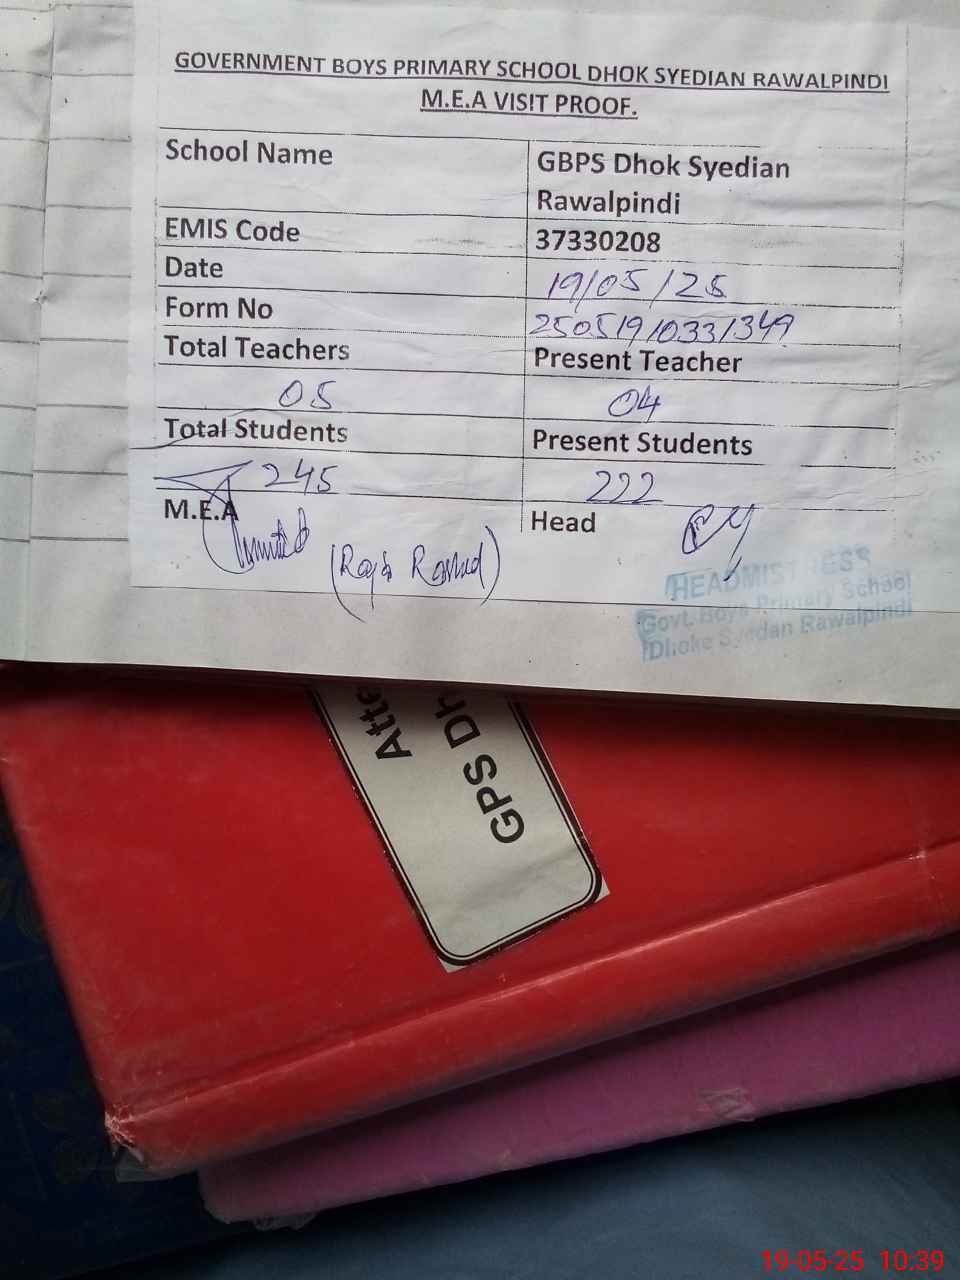 GOVERNMENT BOYS PRIMARY SCHOOL DHOK SYEDIAN RAWALPINDI
M.E.A VISIT PROOF.
School Name
GBPS Dhok Syedian
Rawalpindi
EMIS Code
37330208
Date
19/05/25
Form No
25051910331349
Total Teachers
Present Teacher
05
04
Total Students
Present Students
245
222
M.E.A
Head
(Raja Rashid)
HEADMISTRESS
Govt. Boys Primary School
Dhoke Syedan Rawalpindi
Atte
GPS Dh
19-05-25 10:39